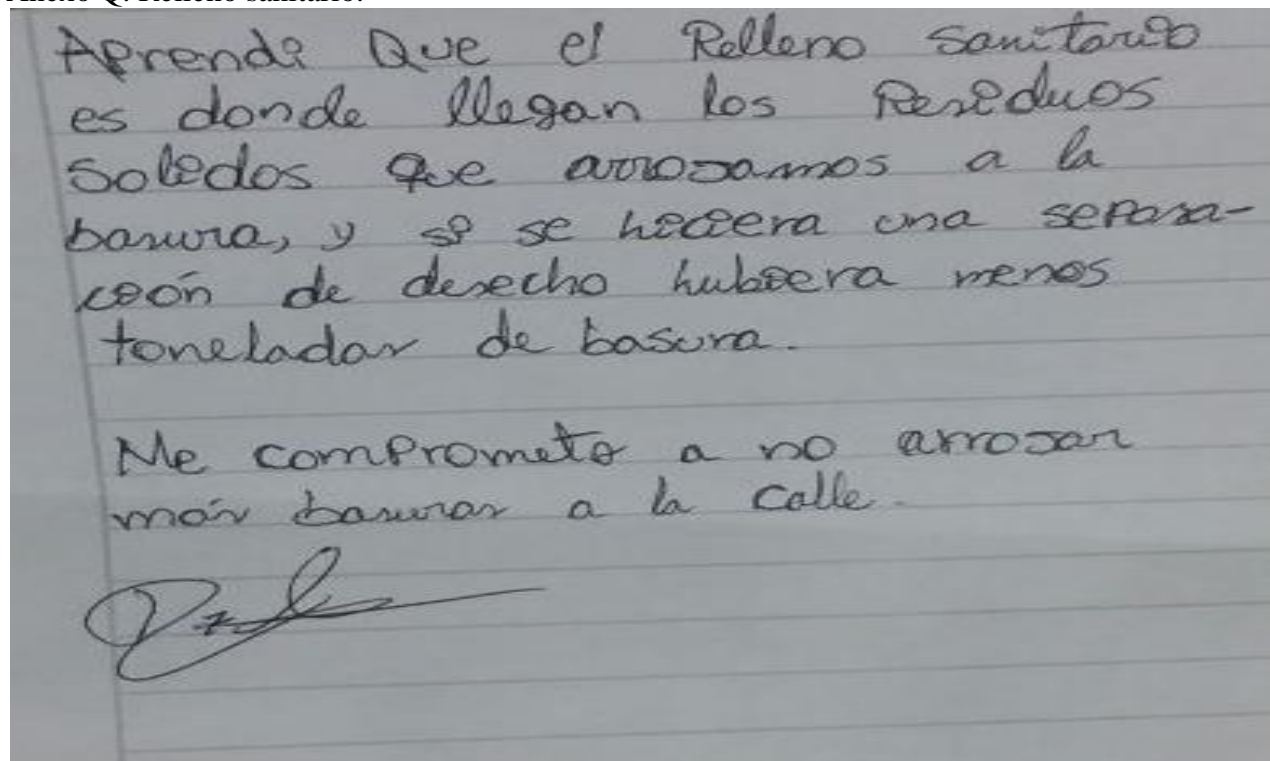 Anexo Q. Relleno sanitario.
Aprendi Que el Relleno sanitario
es donde llegan los Residuos
solidos que arrojamos a la
basura, y si se hiciera una separa-
ción de desecho hubiera menos
toneladas de basura.
Me comprometo a no arrojar
más basuras a la calle.